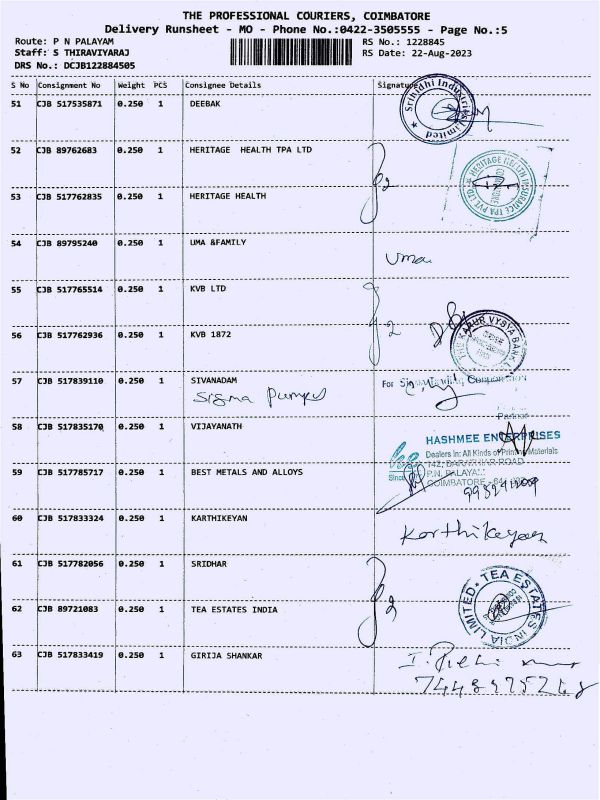 THE PROFESSIONAL COURIERS, COIMBATORE
Delivery Runsheet - MO - Phone No.:0422-3505555 - Page No.:5
Route: P N PALAYAM
RS No.: 1228845
Staff: S THIRAVIYARAJ
RS Date: 22-Aug-2023
DRS No.: DCJB122884505
S No Consignment No Weight PCS Consignee Details Signature
51 CJB 517535871 0.250 1 DEEBAK
52 CJB 89762683 0.250 1 HERITAGE HEALTH TPA LTD
53 CJB 517762835 0.250 1 HERITAGE HEALTH
HERITAGE HEALTH INSURANCE TPA PVT LTD
54 CJB 89795240 0.250 1 UMA &FAMILY
Uma
55 CJB 517765514 0.250 1 KVB LTD
56 CJB 517762936 0.250 1 KVB 1872
57 CJB 517839110 0.250 1 SIVANADAM
Sigma Pumps
For
Partner
58 CJB 517835170 0.250 1 VIJAYANATH
HASHMEE ENTERPRISES
Dealers in: All Kinds of Printing Materials
59 CJB 517785717 0.250 1 BEST METALS AND ALLOYS
Since
P.N. PALAYAM
COIMBATORE
60 CJB 517833324 0.250 1 KARTHIKEYAN
Karthikeyan
61 CJB 517782056 0.250 1 SRIDHAR
62 CJB 89721083 0.250 1 TEA ESTATES INDIA
TEA ESTATES INDIA LIMITED
63 CJB 517833419 0.250 1 GIRIJA SHANKAR